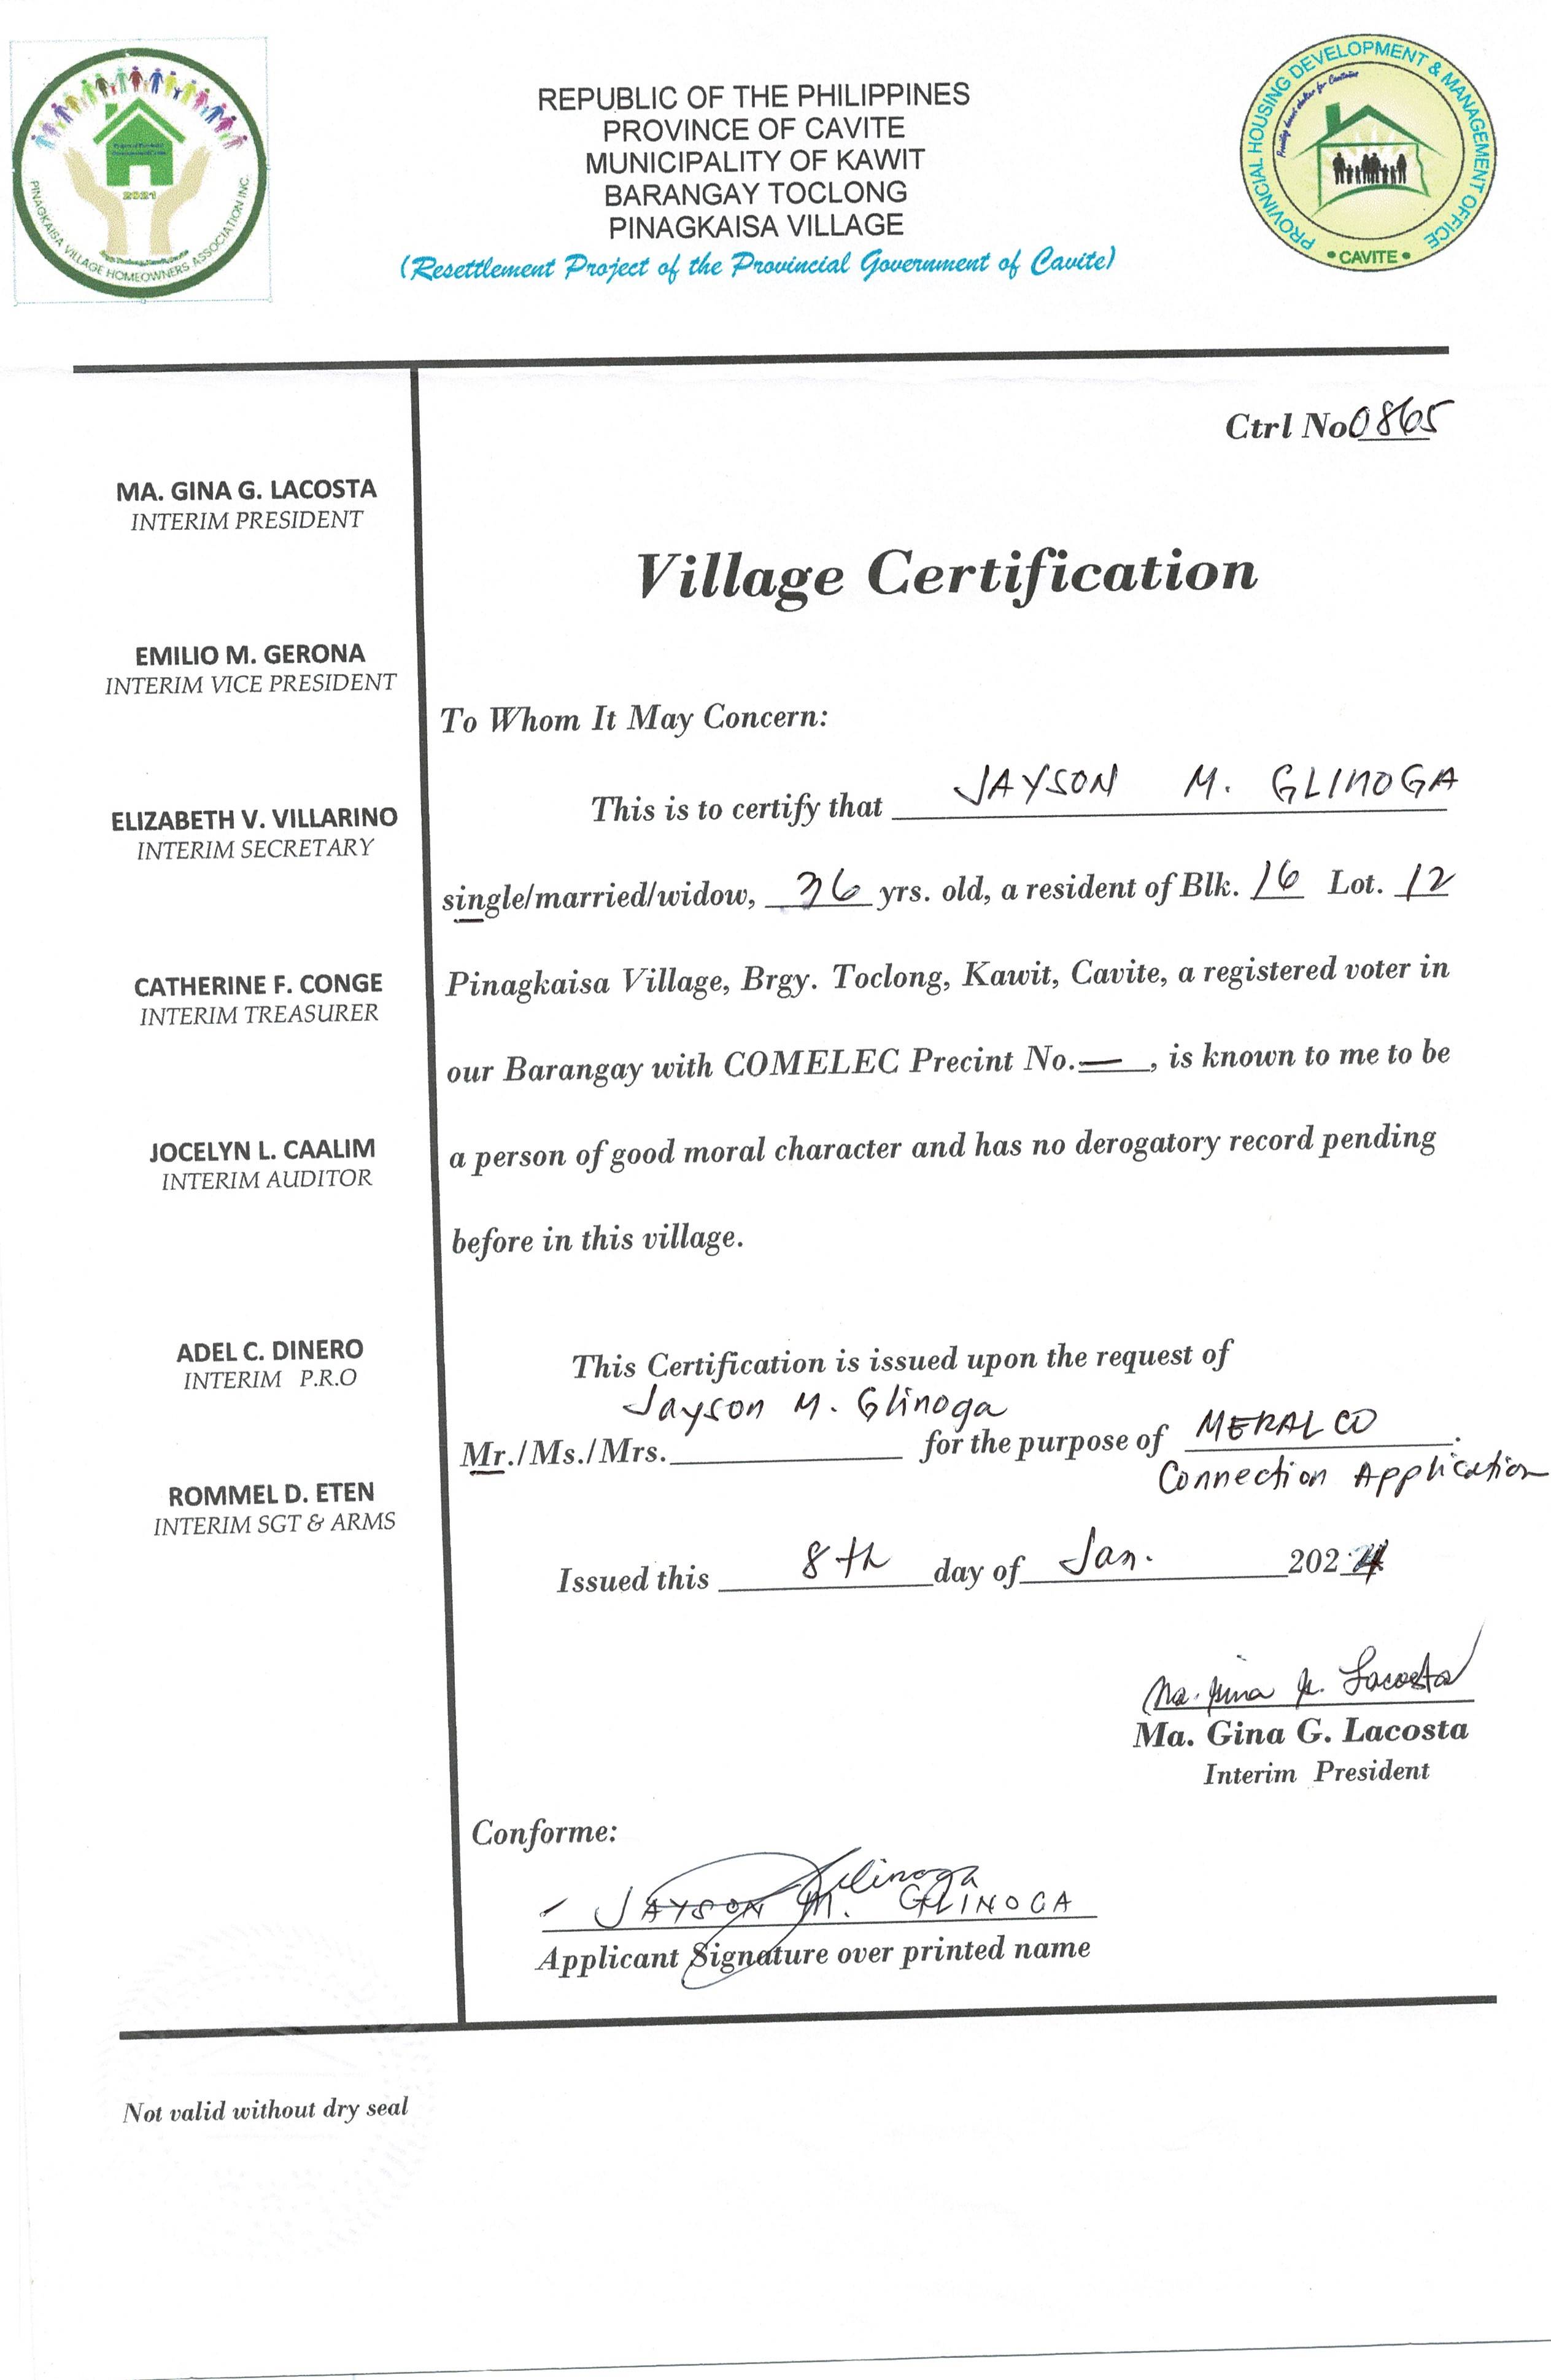 REPUBLIC OF THE PHILIPPINES
PROVINCE OF CAVITE
MUNICIPALITY OF KAWIT
BARANGAY TOCLONG
PINAGKAISA VILLAGE
(Resettlement Project of the Provincial Government of Cavite)
2021
PINAGKAISA VILLAGE HOMEOWNERS ASSOCIATION INC.
PROVINCIAL HOUSING DEVELOPMENT & MANAGEMENT OFFICE
• CAVITE •
MA. GINA G. LACOSTA
INTERIM PRESIDENT
EMILIO M. GERONA
INTERIM VICE PRESIDENT
ELIZABETH V. VILLARINO
INTERIM SECRETARY
CATHERINE F. CONGE
INTERIM TREASURER
JOCELYN L. CAALIM
INTERIM AUDITOR
ADEL C. DINERO
INTERIM P.R.O
ROMMEL D. ETEN
INTERIM SGT & ARMS
Ctrl No 0865
Village Certification
To Whom It May Concern:
This is to certify that JAYSON M. GLINOGA
single/married/widow, 36 yrs. old, a resident of Blk. 16 Lot. 12
Pinagkaisa Village, Brgy. Toclong, Kawit, Cavite, a registered voter in
our Barangay with COMELEC Precint No. — , is known to me to be
a person of good moral character and has no derogatory record pending
before in this village.
This Certification is issued upon the request of
Jayson M. Glinoga
Mr./Ms./Mrs. for the purpose of MERALCO.
Connection Application
Issued this 8th day of Jan. 2024
Ma. Gina G. Lacosta
Ma. Gina G. Lacosta
Interim President
Conforme:
Glinoga
JAYSON M. GLINOGA
Applicant Signature over printed name
Not valid without dry seal